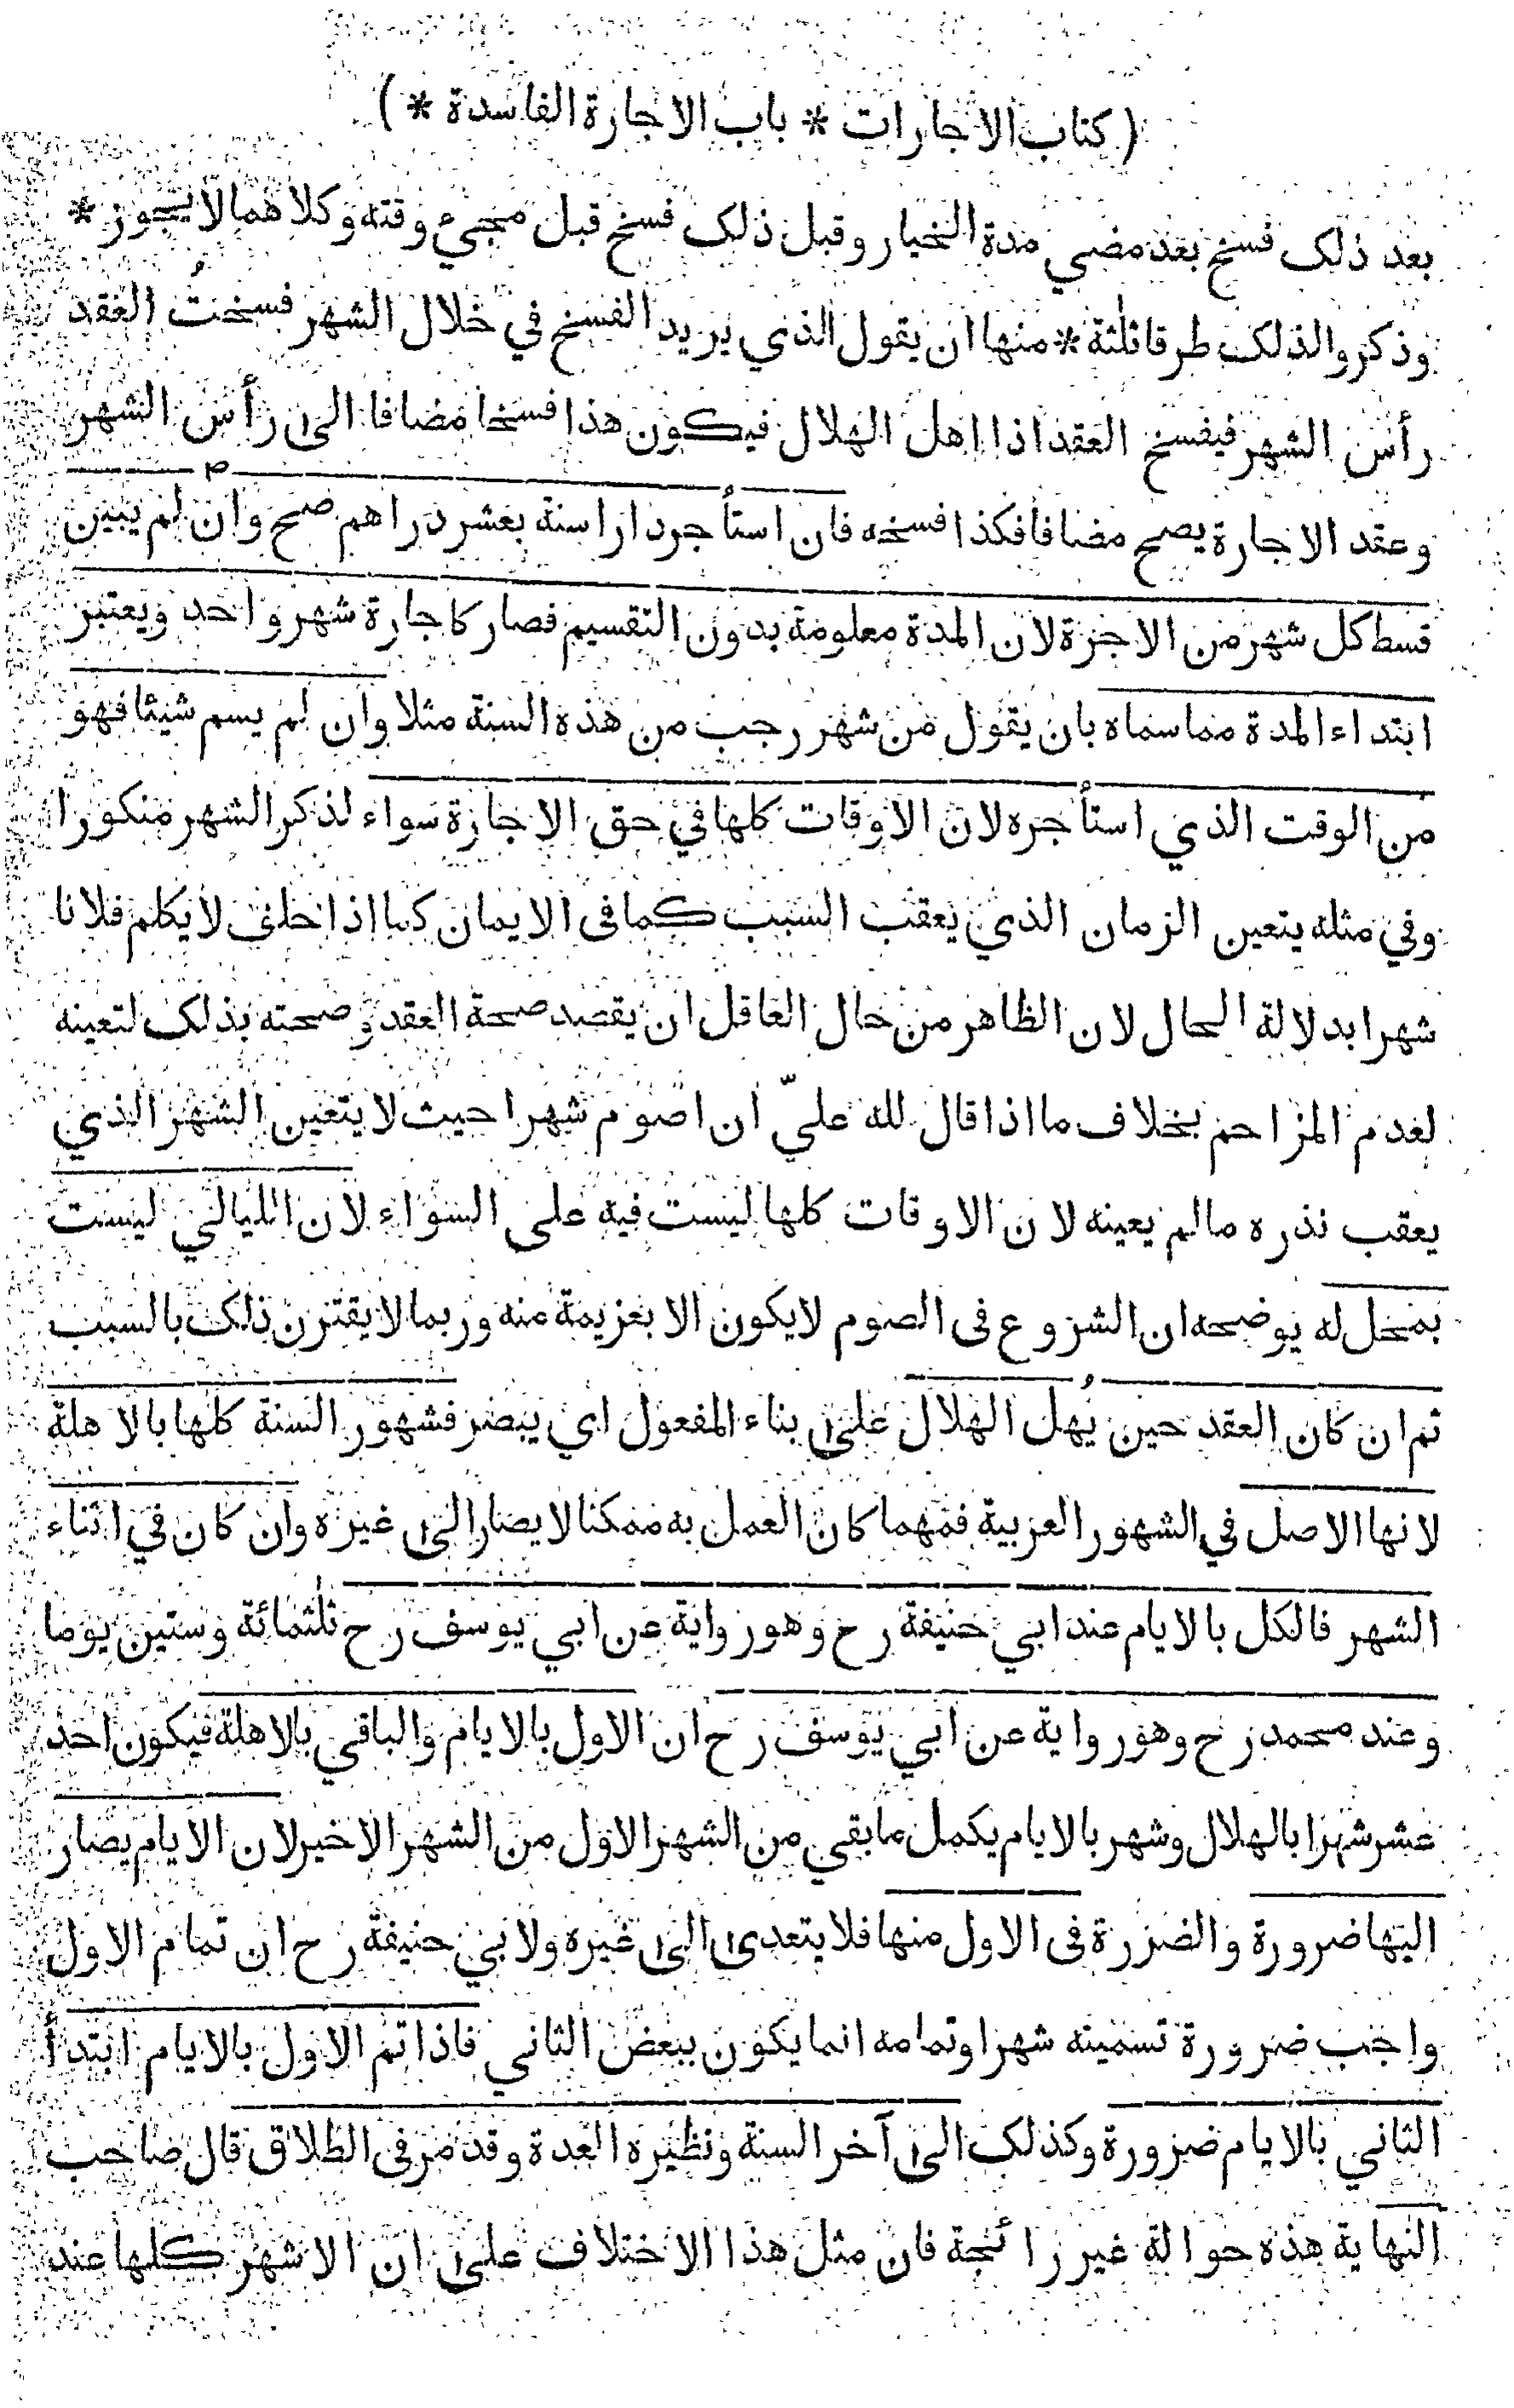 ( كتاب الاجارات * باب الاجارة الفاسدة * )
بعد ذلك فسخ بعد مضي مدة الخيار وقبل ذلك فسخ قبل مجيء وقته وكلاهما لا يجوز *
وذكروا لذلك طرقا ثلثة * منها ان يقول الذي يريد الفسخ في خلال الشهر فسختُ العقد
رأس الشهر فيفسخ العقد اذا اهل الهلال فيكون هذا فسخا مضافا الى رأس الشهر
وعقد الاجارة يصح مضافا فكذا فسخه فان استأجر دارا سنة بعشر دراهم صح وان لم يبين
قسط كل شهر من الاجرة لان المدة معلومة بدون التقسيم فصار كاجارة شهر واحد ويعتبر
ابتداء المدة مما سماه بان يقول من شهر رجب من هذه السنة مثلا وان لم يسم شيئا فهو
من الوقت الذي استأجره لان الاوقات كلها في حق الاجارة سواء لذكر الشهر منكورا
وفي مثله يتعين الزمان الذي يعقب السبب كما فى الايمان كما اذا حلف لا يكلم فلانا
شهرا بدلالة الحال لان الظاهر من حال العاقل ان يقصد صحة العقد و صحته بذلك لتعينه
لعدم المزاحم بخلاف ما اذا قال لله عليّ ان اصوم شهرا حيث لا يتعين الشهر الذي
يعقب نذره مالم يعينه لان الاوقات كلها ليست فيه على السواء لان الليالي ليست
بمحل له يوضحه ان الشروع فى الصوم لا يكون الا بعزيمة منه وربما لا يقترن ذلك بالسبب
ثم ان كان العقد حين يُهل الهلال على بناء المفعول اي يبصر فشهور السنة كلها بالاهلة
لانها الاصل في الشهور العربية فمهما كان العمل به ممكنا لا يصار الى غيره وان كان في اثناء
الشهر فالكل بالايام عند ابي حنيفة رح وهو رواية عن ابي يوسف رح ثلثمائة وستين يوما
وعند محمد رح وهو رواية عن ابي يوسف رح ان الاول بالايام والباقي بالاهلة فيكون احد
عشر شهرا بالهلال وشهر بالايام يكمل ما بقي من الشهر الاول من الشهر الاخير لان الايام يصار
اليها ضرورة والضررة فى الاول منها فلا يتعدى الى غيره ولابي حنيفة رح ان تمام الاول
واجب ضرورة تسميته شهرا وتمامه انما يكون ببعض الثاني فاذا تم الاول بالايام ابتدأ
الثاني بالايام ضرورة وكذلك الى آخر السنة ونظيره العدة وقد مر فى الطلاق قال صاحب
النهاية هذه حوالة غير رائجة فان مثل هذا الاختلاف على ان الاشهر كلها عند